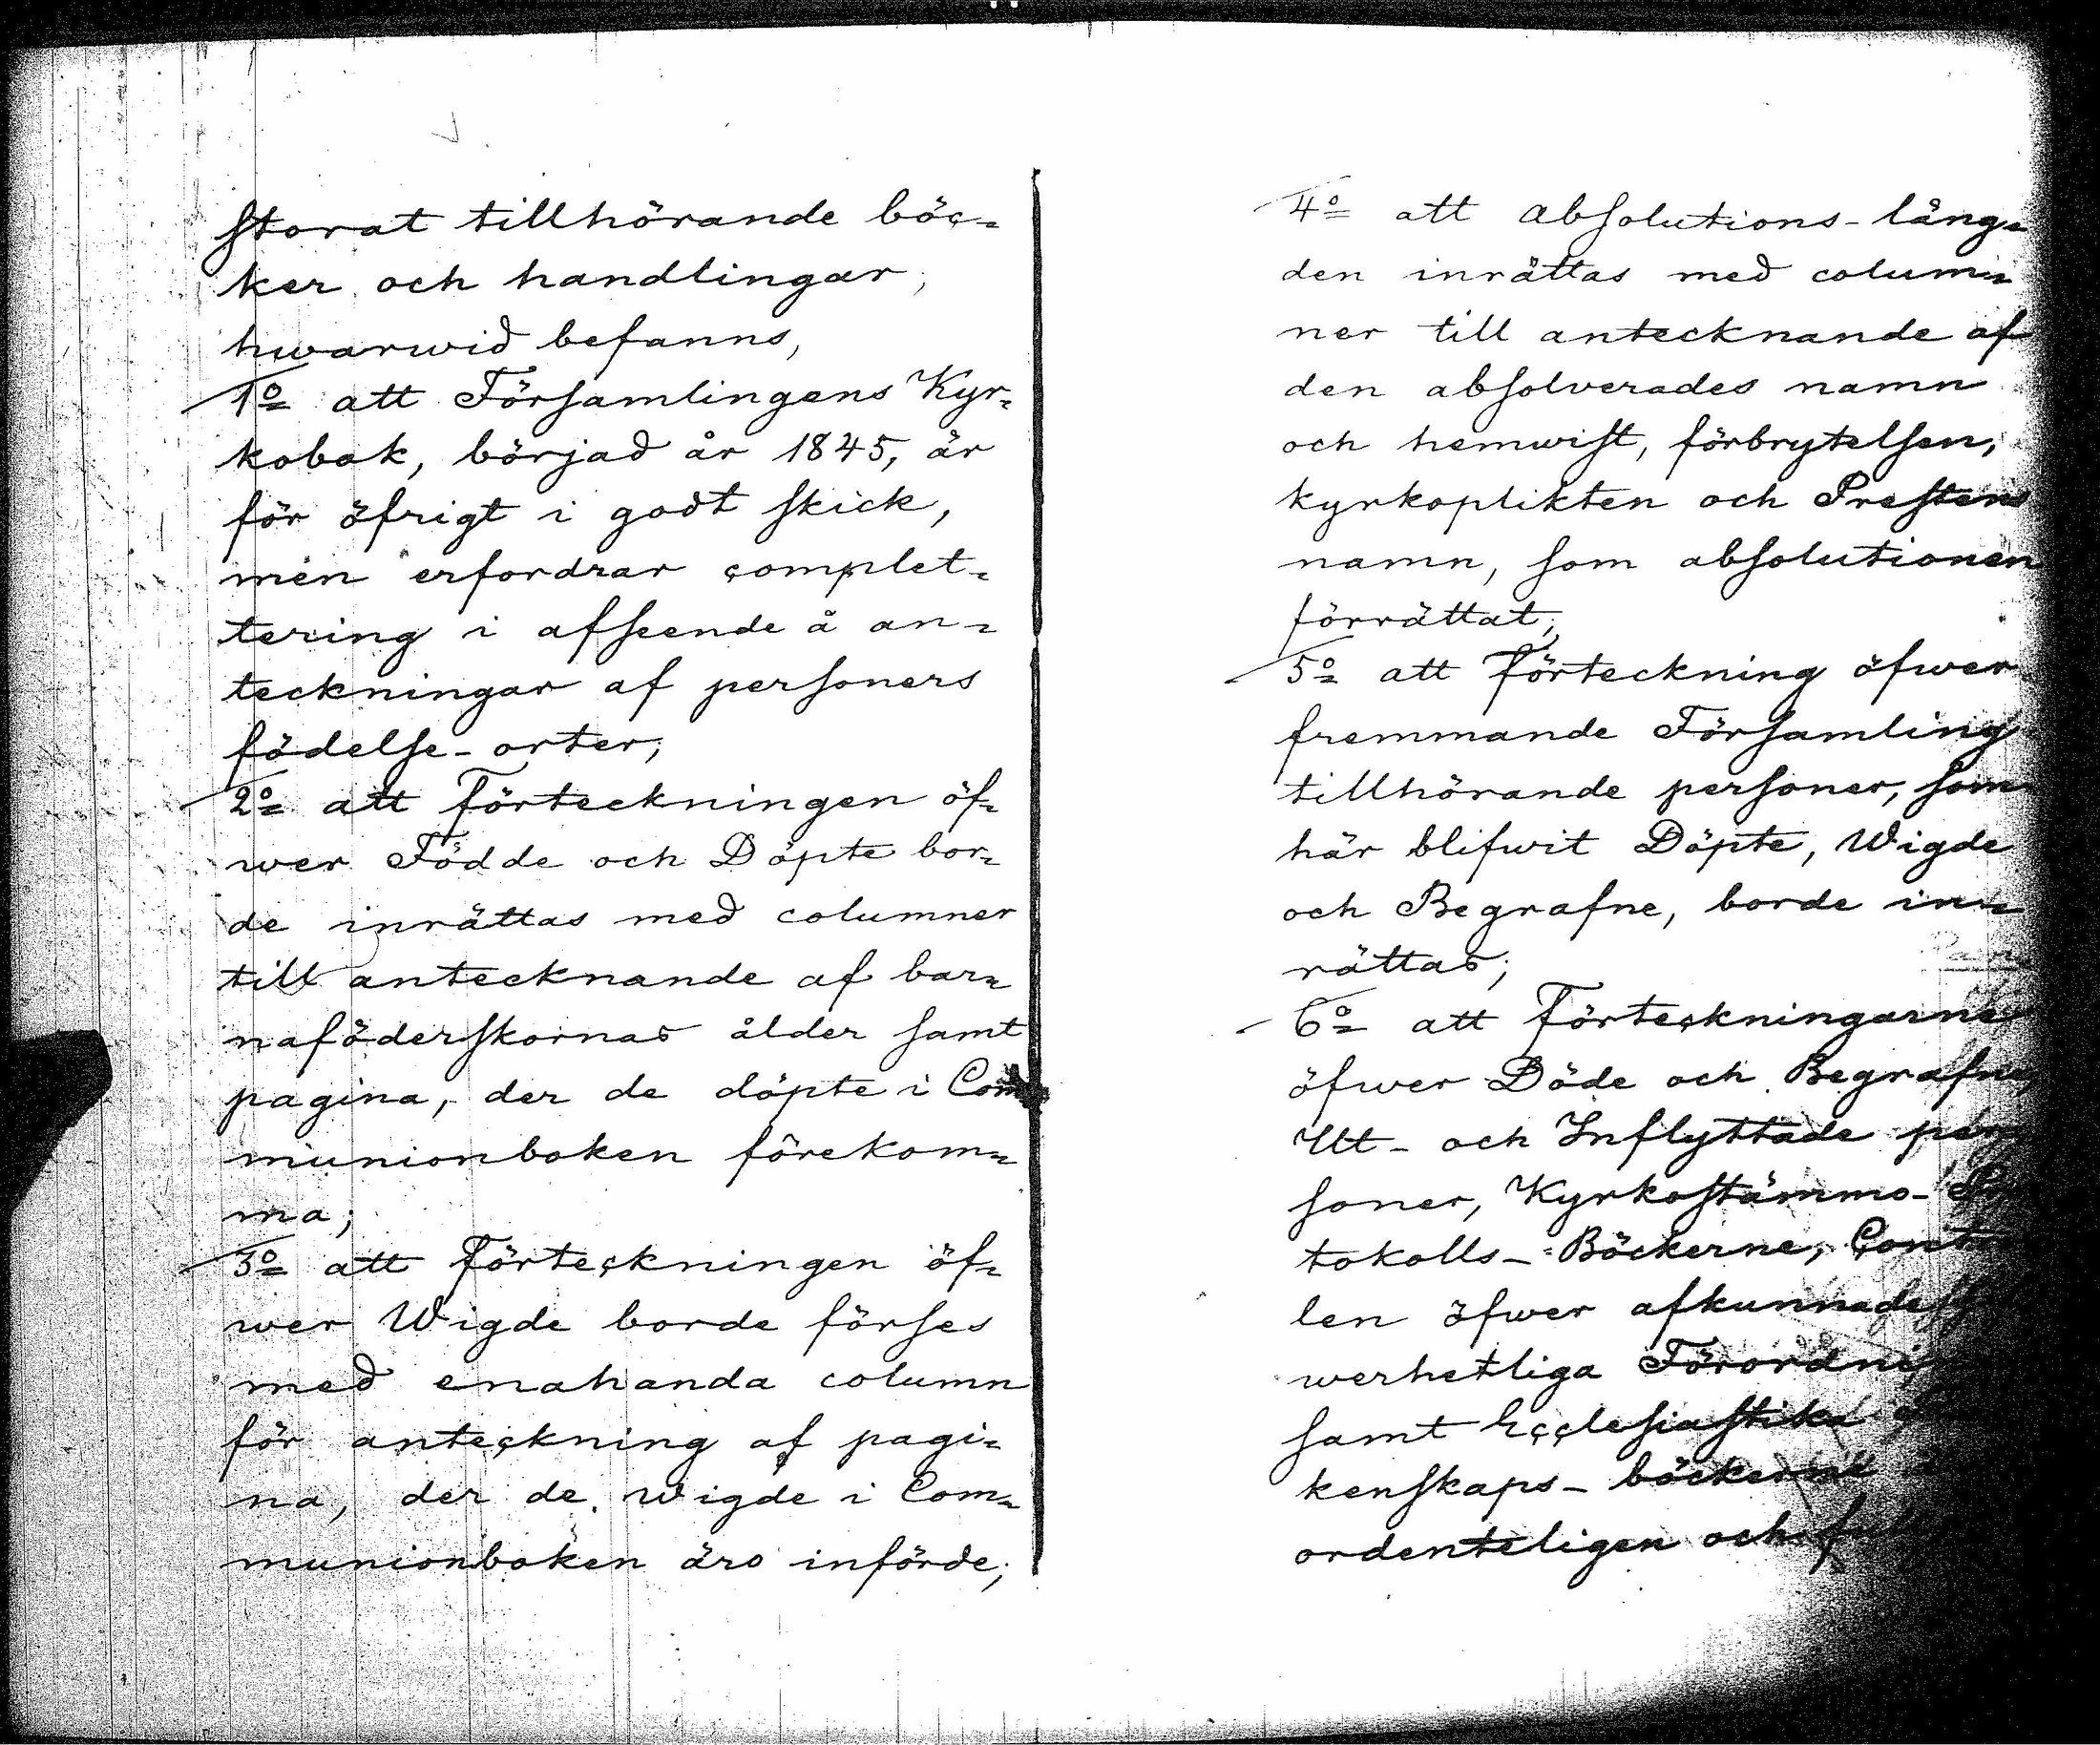 storat tillhörande böc-
ker och handlingar,
hwarwid befanns,
1o att Församlingens Kyr-
kobok, börjad år 1845, är
för öfrigt i godt skick,
men erfordrar complet-
tering i afseende å an-
teckningar af personers
födelse-orter;
2o att Förteckningen öf-
wer Födde och Döpte bor-
de inrättas med columner
till antecknande af bar-
naföderskornas ålder samt
pagina, der de döpte i Com-
munionboken förekom-
ma;
3o att Förteckningen öf-
wer Wigde borde förses
med enahanda column
för anteckning af pagi-
na, der de wigde i Com-
munionboken äro införde;
4o att absolutions-läng-
den inrättas med colum-
ner till antecknande af
den absolverades namn
och hemwist, förbrytelsen,
kyrkoplikten och Prestens
namn, som absolutionen
förrättat;
5o att Förteckning öfwer
fremmande Församling
tillhörande personer, som
här blifwit Döpte, Wigde
och Begrafne, borde in-
rättas;
6o att Förteckningarne
öfwer Döde och Begrafne
Ut- och Inflyttade per-
soner, Kyrkostämmo-
tokolls-Böckerne,
len öfwer afkunnade
werhetliga
samt Ecclesiastika
kenskaps-böckerne
ordenteligen och